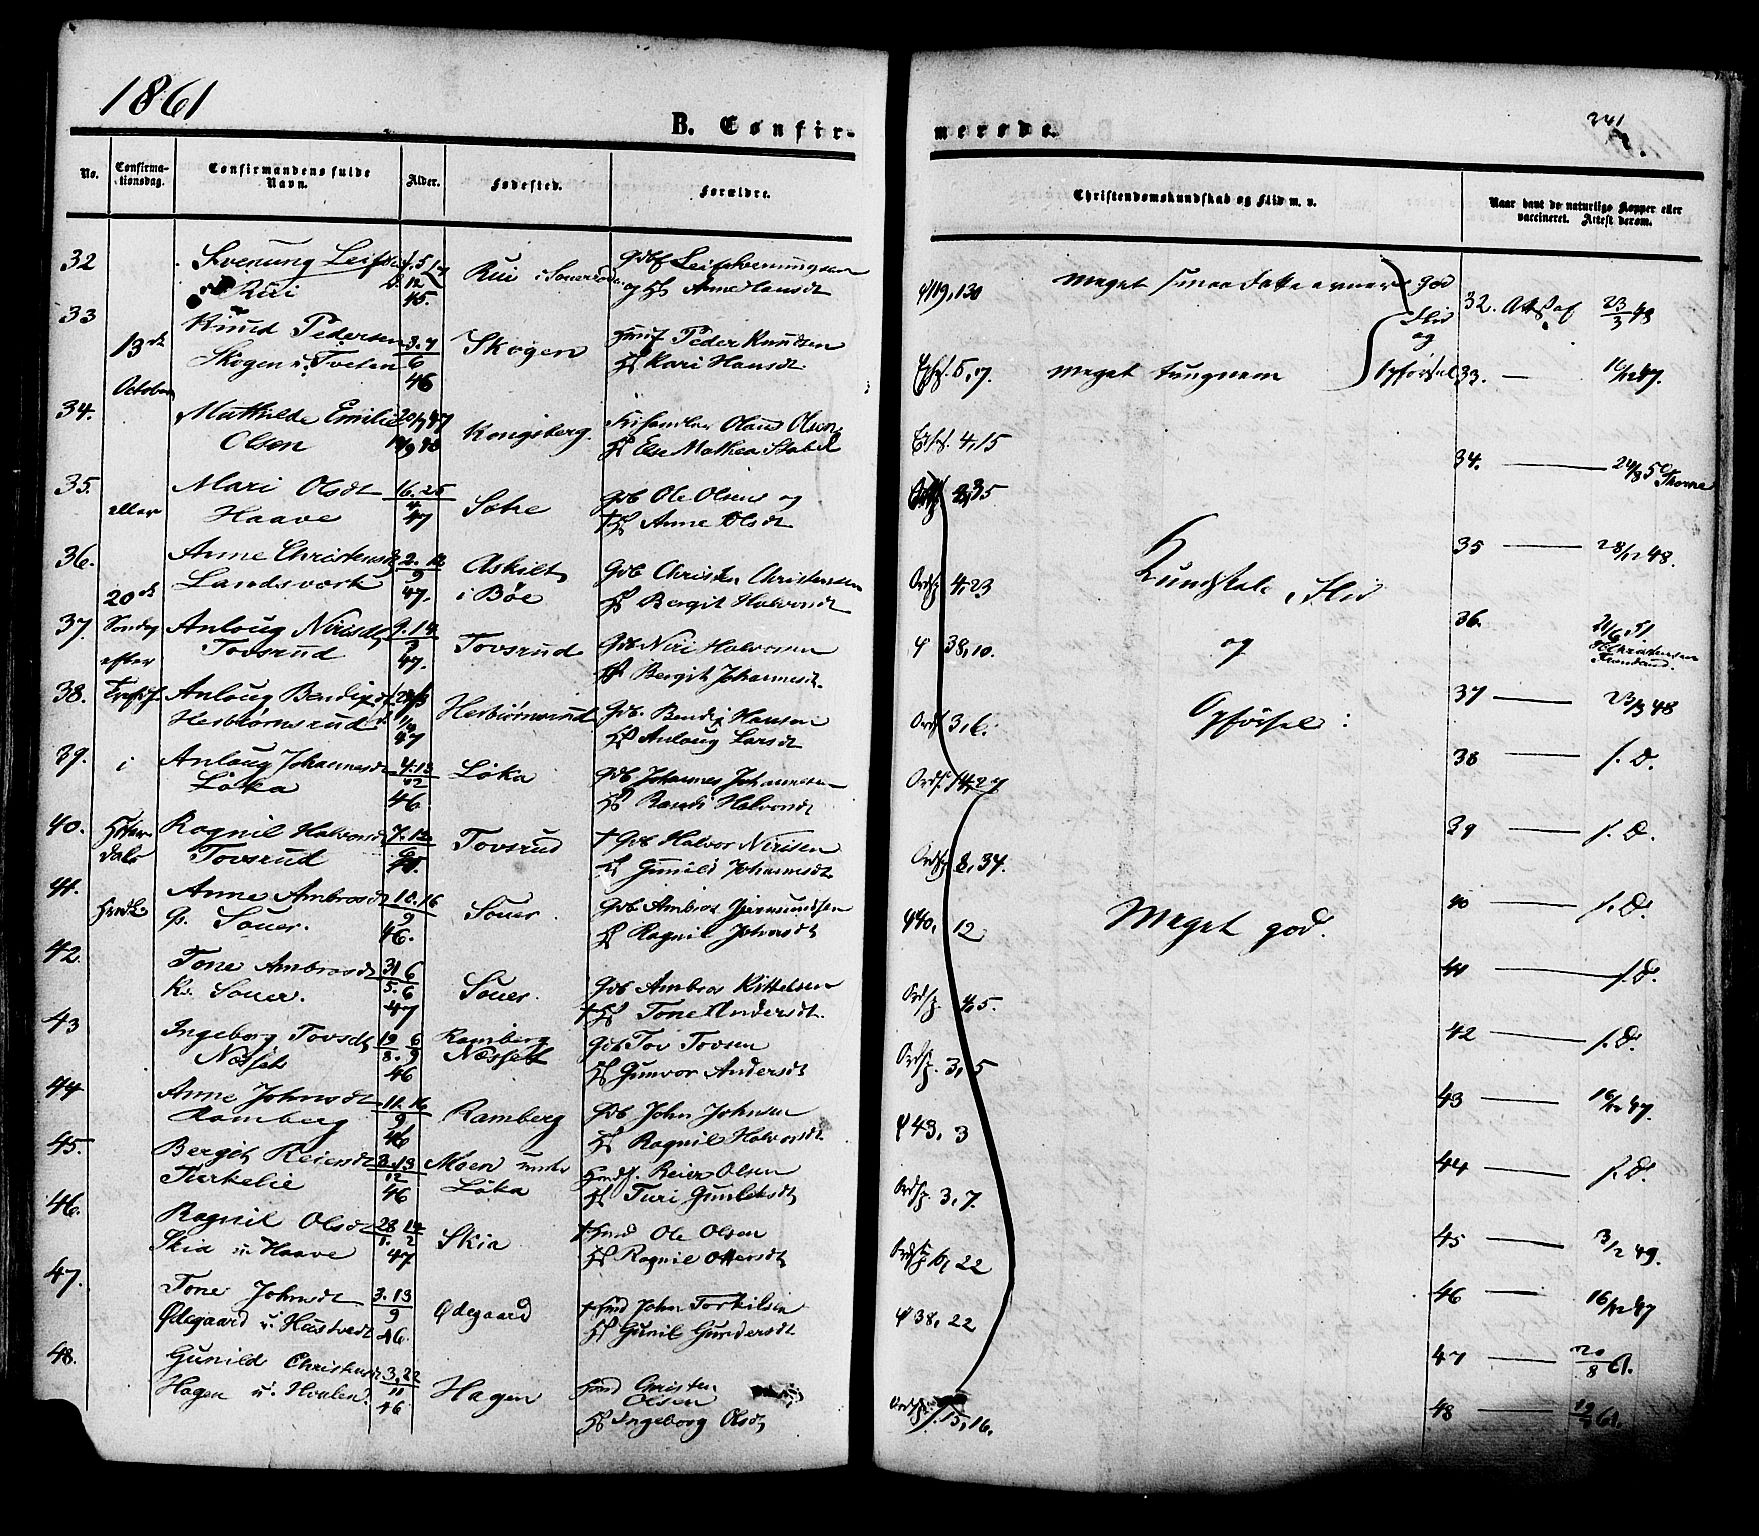 1861
B. Confir-
No.
Confirma-
tionsdag.
Confirmandens fulde
Navn.
Alder.
Fødested.
Forældre.
32
Svenung Leifsen
Rui
45.
Rui i Sauerøden
Gbf Leif Svenungsen
og H Anne Hansdt
33
13de
October
Knud Pedersen
Skogen u. Tveten
46
Skogen
Husf Peder Knudsen
H Kari Hansdt
34.
Mathilde Emilie
Olsen
Kongsberg
Olaus Olsen
H Else Mathea Stabel
35.
eller
Mari Olsdt
Haave
16. 25
4
47
Sætre
Gdb Ole Olsen og
†H Anne Olsdt
36.
20de
Anne Christensdt
Landsværk
2. 12
9
47.
Askilt
i Bøe
Gdb Christen Christensen
H Bergit Halvorsdt
37
Søndag
efter
Anloug Nirisdt
Tovsrud
9. 14
47.
Tovsrud
Gdb Niri Halvorsen
H Bergit Johannesdt.
38.
Trefold.
Anloug Bendixdt
Herbiørnsrud
47
Herbiørnsrud
Gdb. Bendix Hansen
H Anloug Larsdt
39.
i
Anloug Johannesdt
Løka
4. 13
12
46.
Løka
Gdb Johannes Johannesen
H Randi Halvorsdt
40.
Hitter-
dals
Ragnil Halvorsdt
Tovsrud
7. 12
6
Tovsrud
† Gdb Halvor Nirisen
H Gunild Johannesdt
41.
Hvdk.
Anne Ambrosdt
Sauer.
10. 16
9
46.
Sauer
Gdb Ambros Giermundsen
H Ragnil Johnsdt
42.
Tone Ambrosdt
Sauer.
31 6
5. 6
47
Sauer.
Gdb Ambros Kittelsen
†H Tone Andersdt.
43
Ingeborg Tovsdt
Næsset
19 6
8. 9
46
Ramberg
Næsset
Gdb Tov Tovsen
H Gunvor Andersdt
44
Anne Johnsdt
Ramberg
11. 16
9
46
Ramberg
Gdb John Johnsen
H Ragnil Halvorsdt
45.
Bergit Reiersdt
Turkelie
8. 13
12
46
Moen under
Løka
Husf. Reier Olsen
H Turi Gunleksdt
46.
Ragnil Olsdt
Skia u. Haave
28 14
1. 2
47
Skia
† Hmd Ole Olsen
H Ragnil Ottersdt
47.
Tone Johnsdt
Ødegaard u. Hustvedt
3. 13
9
46.
Ødegaard
† Hmd John Torkilsen
H Gunil Gundersdt
48.
Gunild Christensdt
Hagen u. Hvalen
3. 22
11
46
Hagen
Hmd Christen
Olsen
H Ingeborg Olsdt
merede.
241
Christendomskundskab og Flid m. v.
Naar havt de naturlige Kopper eller
vaccineret. Attest derom.
ψ 119, 130
Meget
god
Flid
og
Opførsel
32. Att. af 23/3 48
Eph. 5, 7.
meget tungnem
33. —
Eph. 4, 15
34. —
Ordsp. 3, 35
35 — 28/12 48.
Ordsp. 4, 23
Kundskab, Flid
og
Opførsel:
Meget god.
36. 21/6 51
ψ 38, 10.
37 — 23/3 48
Ordsp. 3, 6.
38 — f. D.
Ordsp. 14, 27
39 — f. D.
Ordsp. 8, 34.
40 — f. D.
ψ 40, 12
41 — f. D.
Ordsp. 4, 5.
42 — f. D.
Ordsp. 3, 5
43 — 16/12 47.
ψ 43, 3
44 — f. D.
Ordsp. 3, 7.
45 — 3/2 49.
Ordsp. 6, 22
46 — 16/12 47
ψ 38, 22
47 — 20/8 61.
Ordsp. 15, 16.
48 — 61.